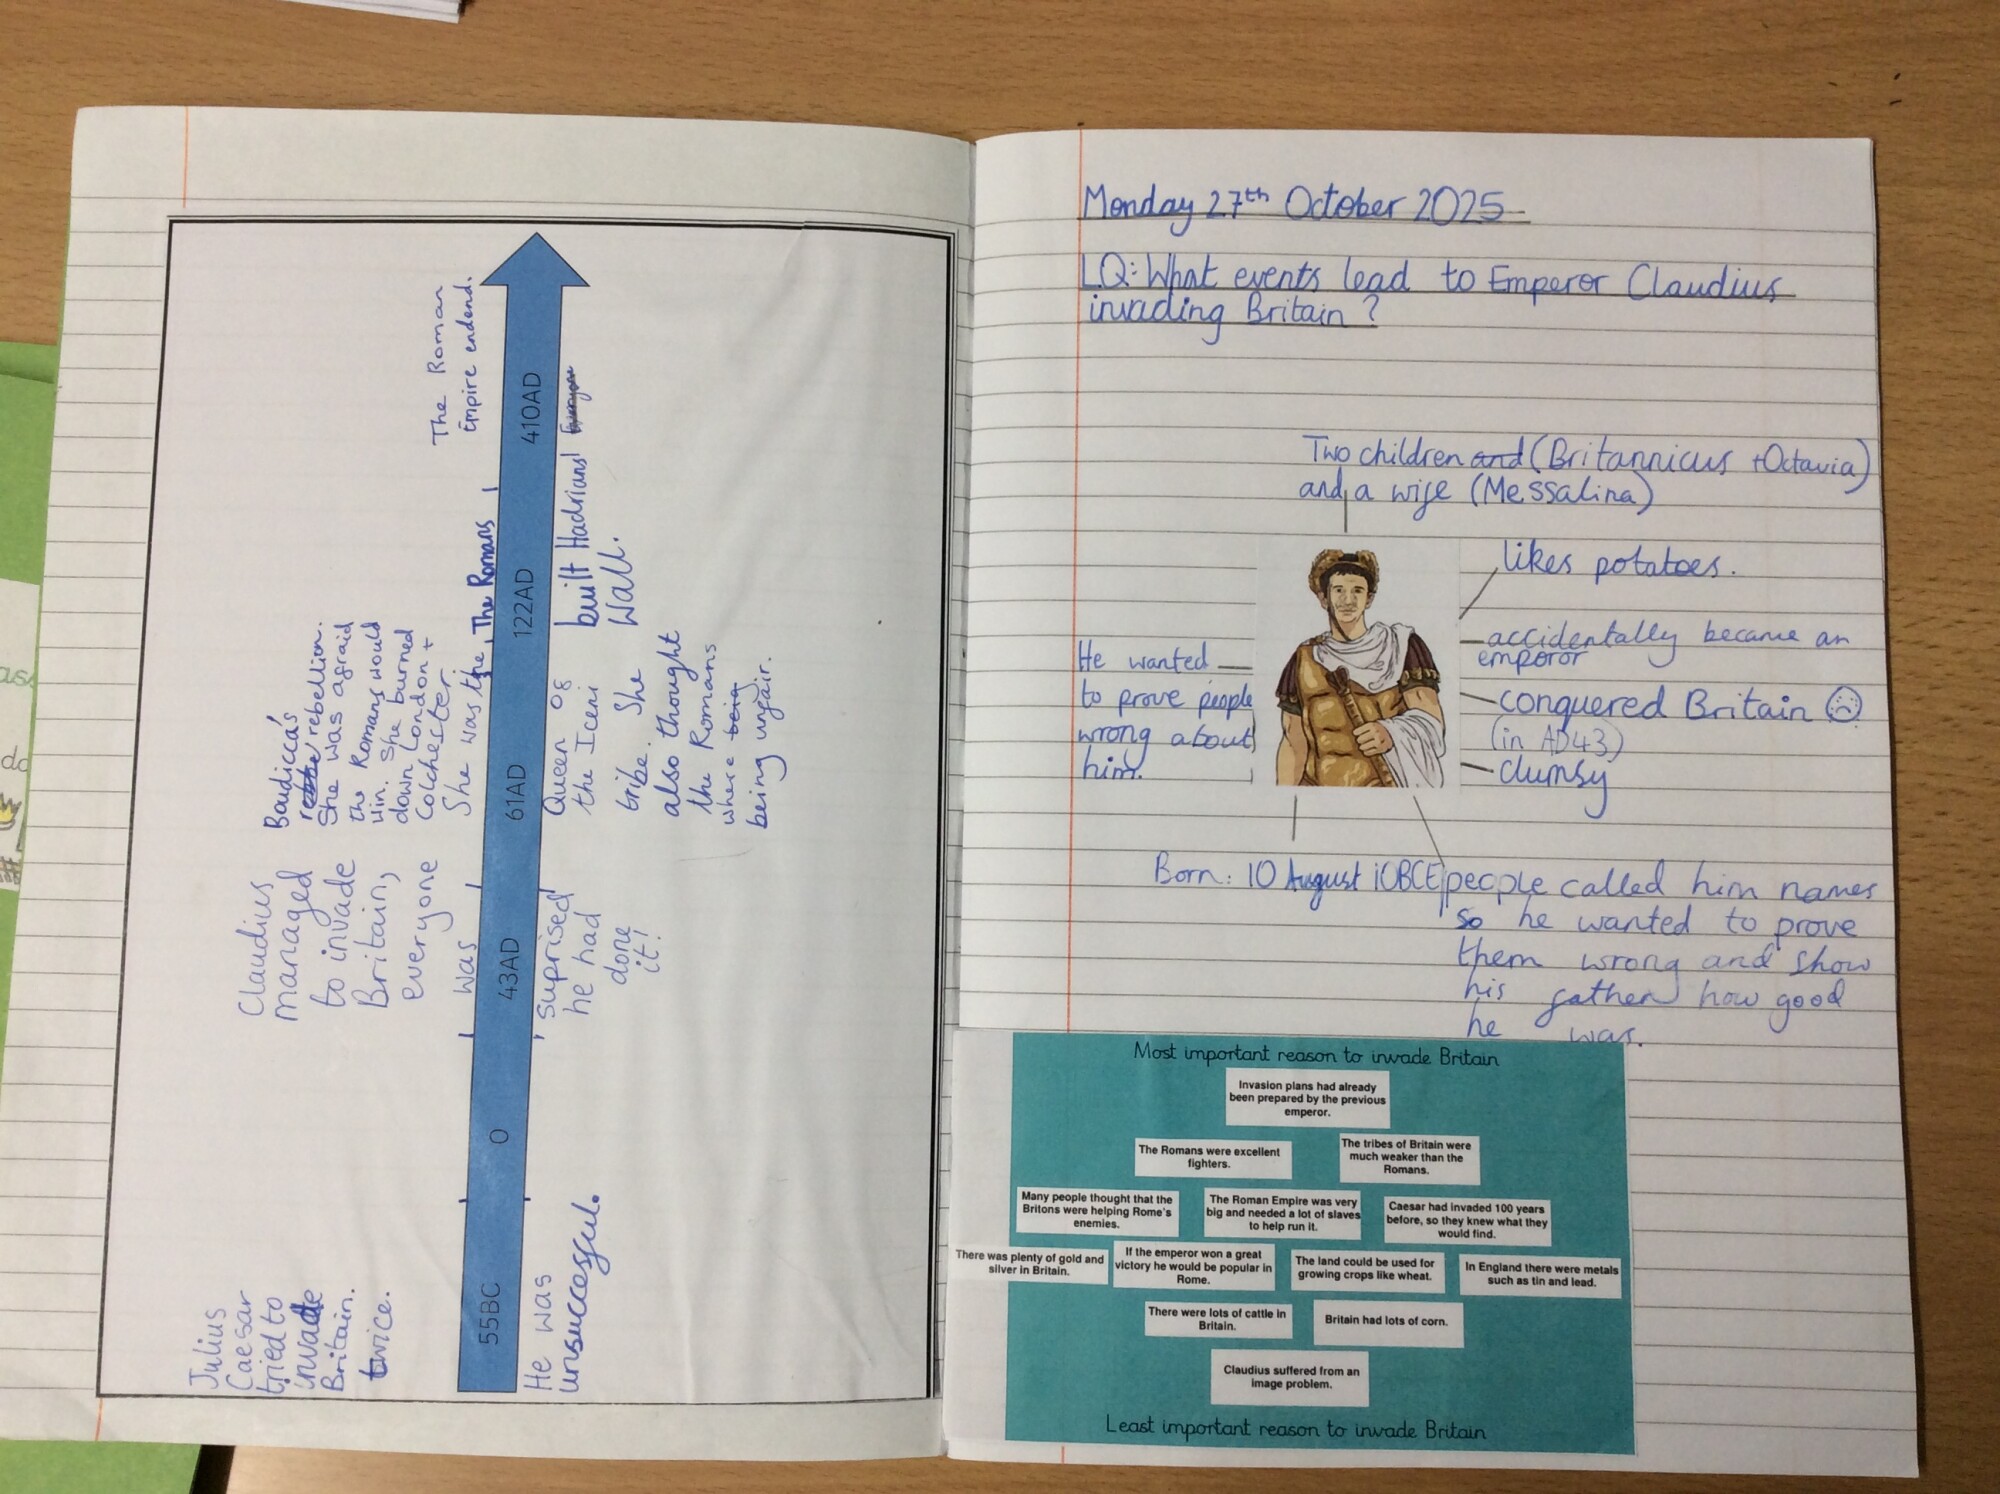 Julius
Caesar
tried to
invade
Britain.
twice.
55BC
He was
unsuccessful.
0
Claudius
managed
to invade
Britain,
everyone
was
43AD
suprised
he had
done
it!
Boudicca's
rebellion.
She was afraid
the Romans would
win. She burned
down London +
Colchester
She was the
61AD
Queen of
the Iceni
tribe. She
also thought
the Romans
where being
being unfair.
The Romans
122AD
built Hadrians!
Wall.
The Roman
Empire endend.
410AD
Everyone
Monday 27th October 2025
LQ: What events lead to Emperor Claudius
invading Britain?
Two children and (Britannicus + Octavia)
and a wife (Messalina)
likes potatoes.
accidentally became an
emperor
conquered Britain
(in AD43)
clumsy
He wanted
to prove people
wrong about
him.
Born: 10 August 10BCE
people called him names
so he wanted to prove
them wrong and show
his father how good
he was.
Most important reason to invade Britain
Invasion plans had already
been prepared by the previous
emperor.
The Romans were excellent
fighters.
The tribes of Britain were
much weaker than the
Romans.
Many people thought that the
Britons were helping Rome's
enemies.
The Roman Empire was very
big and needed a lot of slaves
to help run it.
Caesar had invaded 100 years
before, so they knew what they
would find.
There was plenty of gold and
silver in Britain.
If the emperor won a great
victory he would be popular in
Rome.
The land could be used for
growing crops like wheat.
In England there were metals
such as tin and lead.
There were lots of cattle in
Britain.
Britain had lots of corn.
Claudius suffered from an
image problem.
Least important reason to invade Britain